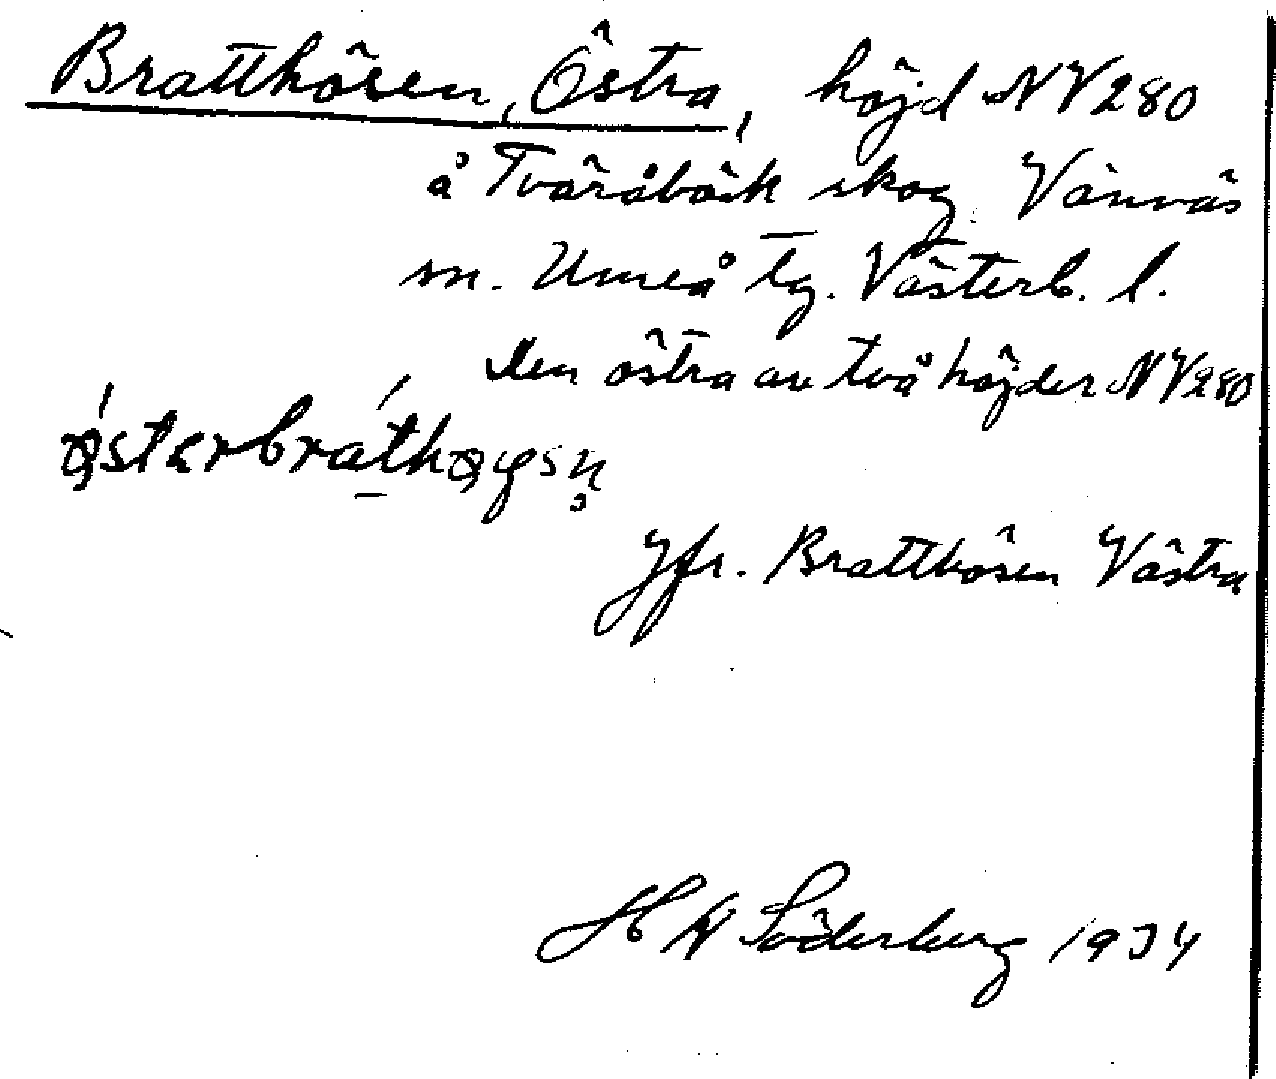 Bratthösen, Östra, höjd NV280
å Tväråbäck skog Vännäs
sn. Umeå tg. Västerb. l.
den östra av två höjder NV280
Jfr. Bratthösen Västra
H W Söderberg 1934